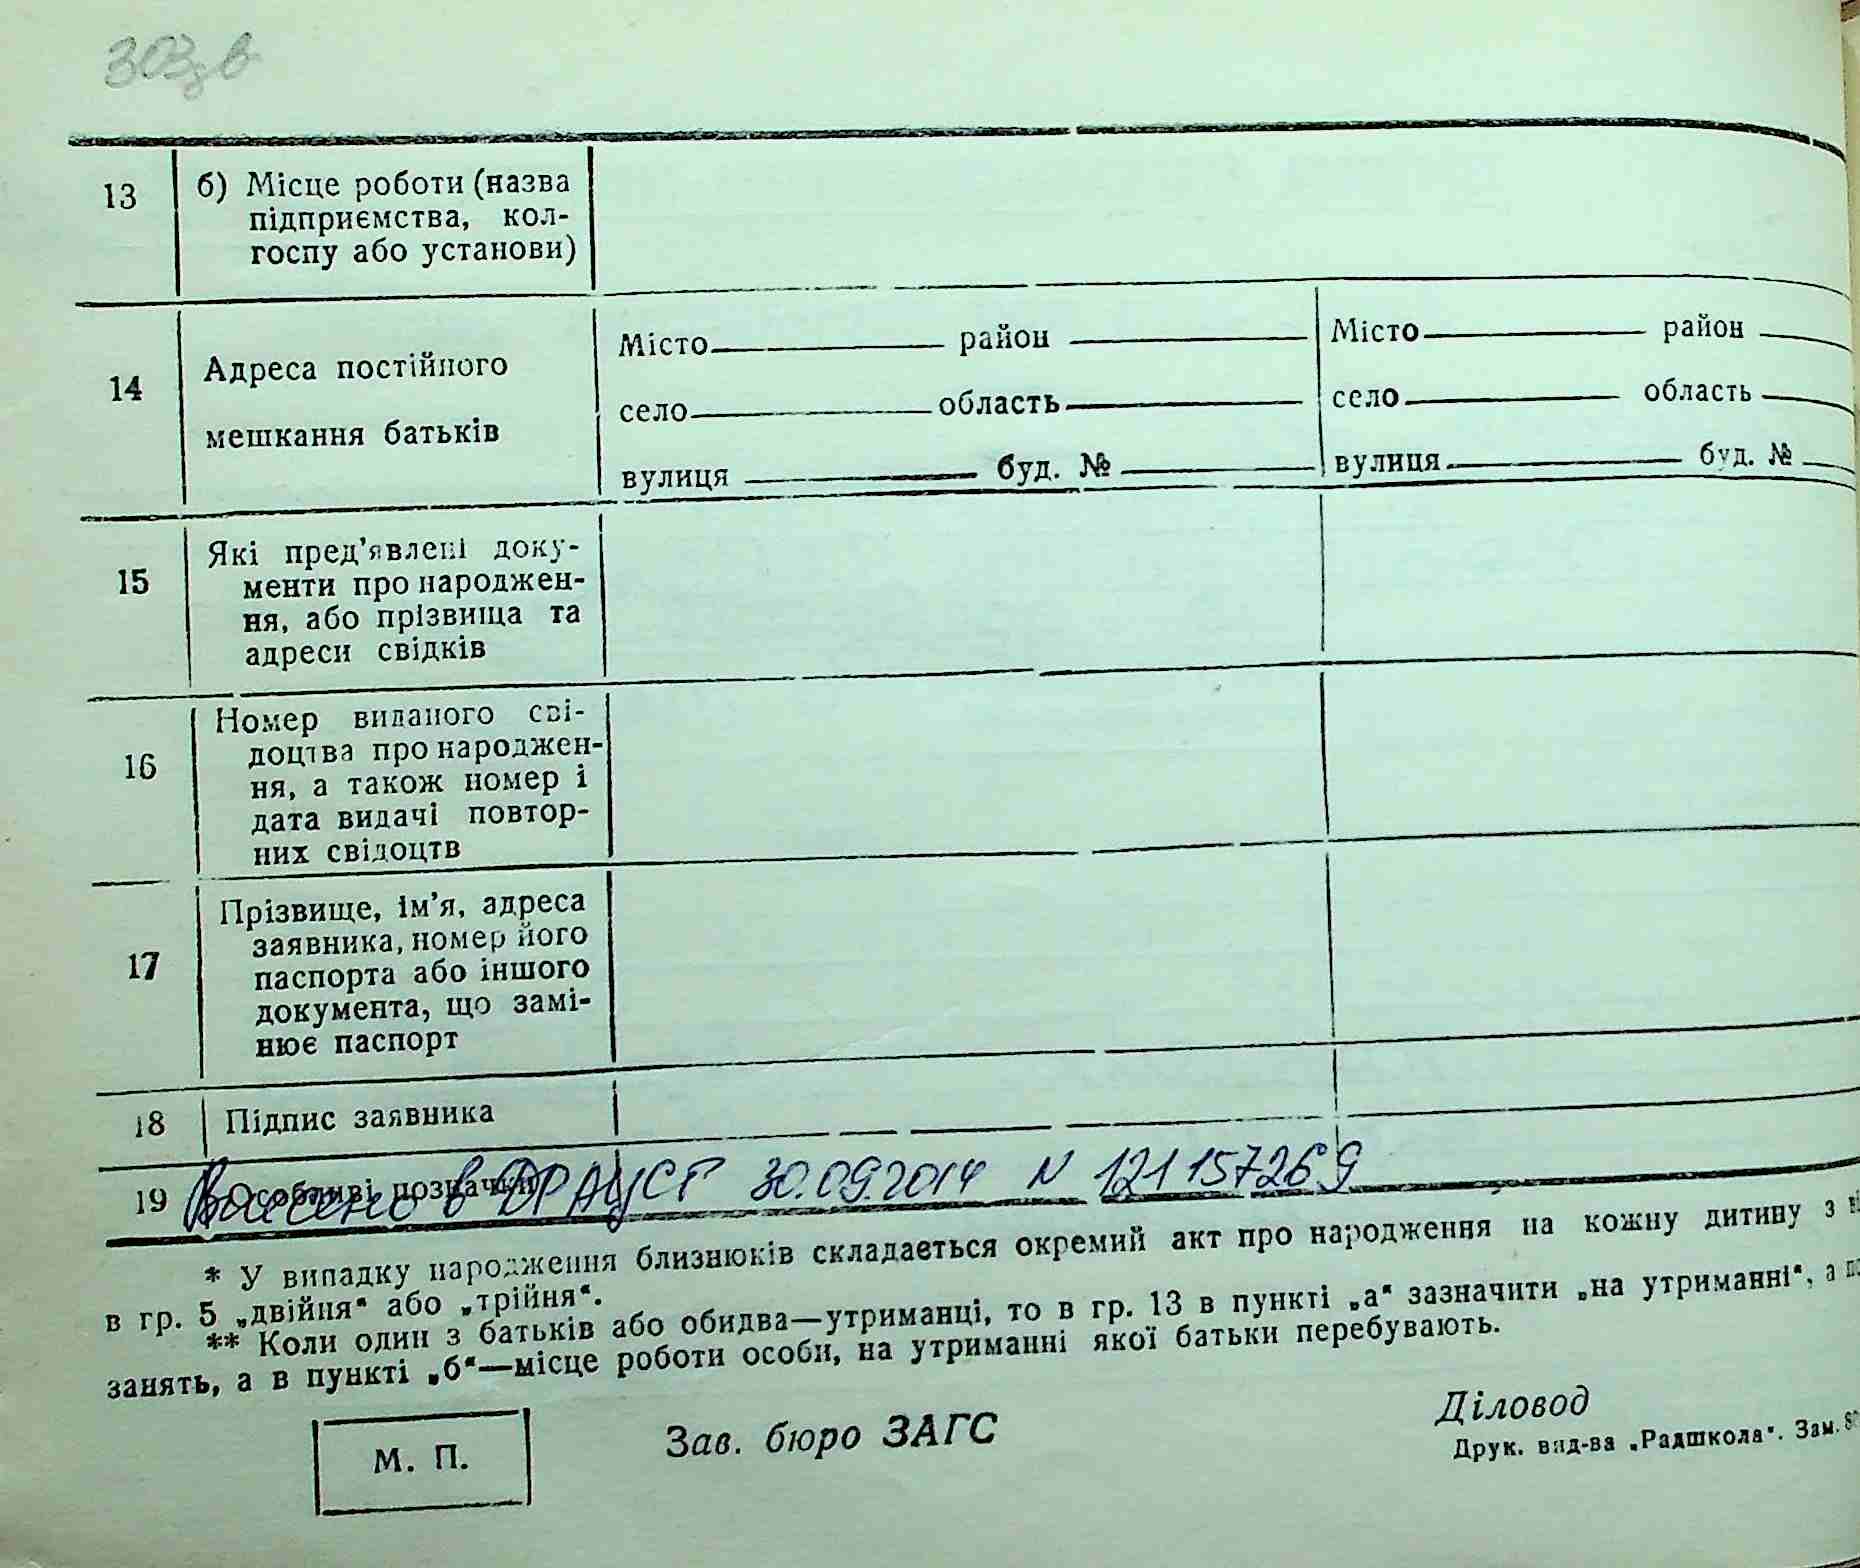 303 в
13 б) Місце роботи (назва
підприємства, кол-
госпу або установи)
14 Адреса постійного
мешкання батьків
Місто район
село область
вулиця буд. №
Місто район
село область
вулиця буд. №
15 Які пред'явлені доку-
менти про народжен-
ня, або прізвища та
адреси свідків
16 Номер виданого сві-
доцтва про народжен-
ня, а також номер і
дата видачі повтор-
них свідоцтв
17 Прізвище, ім'я, адреса
заявника, номер його
паспорта або іншого
документа, що замі-
нює паспорт
18 Підпис заявника
19 Особливі позначки
Внесено в ДРАЦСГ 30.09.2014 N 121157269
* У випадку народження близнюків складається окремий акт про народження на кожну дитину з
в гр. 5 „двійня“ або „трійня“.
** Коли один з батьків або обидва—утриманці, то в гр. 13 в пункті „а“ зазначити „на утриманні“, а
занять, а в пункті „б“—місце роботи особи, на утриманні якої батьки перебувають.
М. П.
Зав. бюро ЗАГС
Діловод
Друк. вид-ва „Радшкола“. Зам.